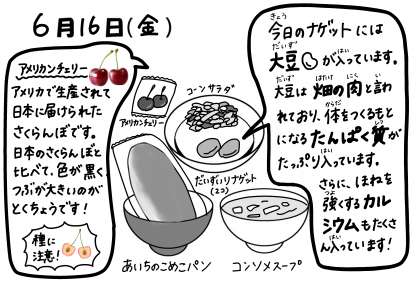 6月16日(金)
アメリカンチェリー
アメリカで生産されて
日本に届けられた
さくらんぼです。
日本のさくらんぼと
比べて、色が黒く、
つぶが大きいのが
とくちょうです!
種に
注意!
アメリカンチェリー
コーンサラダ
だいずいりナゲット
(2コ)
あいちのこめこパン
コンソメスープ
きょう
今日のナゲットには
だいず はい
大豆が入っています。
だいず はたけ にく い
大豆は畑の肉と言わ
からだ
れており、体をつくるもと
しつ
になるたんぱく質が
はい
たっぷり入っています。
さらに、ほねを
つよ
強くするカル
シウムもたくさ
はい
ん入っています!